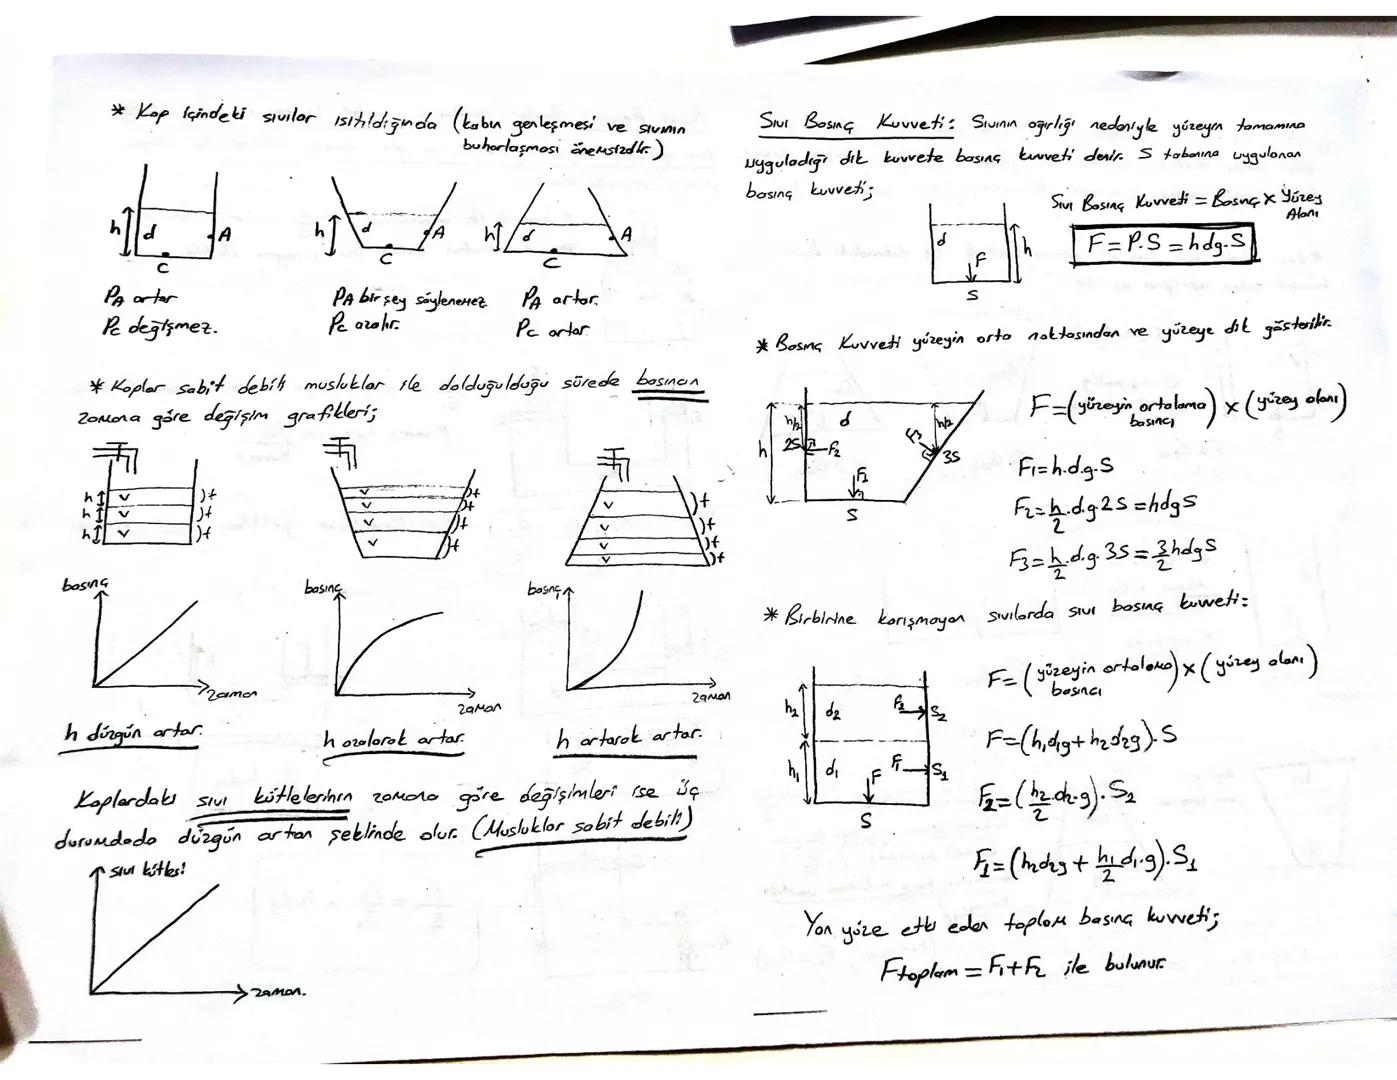 * Kap içindeki sıvılar ısıtıldığında (kabın genleşmesi ve sıvının
buharlaşması önemsizdir.)
h d A C
h d A C
h d A C
PA artar
Pc değişmez.
PA bir şey söylenemez
Pc azalır.
PA artar.
Pc artar
* Kaplar sabit debili musluklar ile dolduğulduğu sürede basıncın
zamana göre değişim grafikleri;
h v )t
h v )t
h v )t
v )t
v )t
v )t
v )t
v )t
v )t
v )t
v )t
basınç
zaman
basınç
zaman
basınç
zaman
h düzgün artar.
h azalarak artar.
h artarak artar.
Kaplardaki sıvı kütlelerinin zamana göre değişimleri ise üç
durumdada düzgün artan şeklinde olur. (Musluklar sabit debili)
sıvı kütlesi
zaman.
Sıvı Basınç Kuvveti: Sıvının ağırlığı nedeniyle yüzeyin tamamına
uyguladığı dik kuvvete basınç kuvveti denir. S tabanına uygulanan
basınç kuvveti;
d F h
S
Sıvı Basınç Kuvveti = Basınç x Yüzey
Alanı
F = P.S = hdg.S
* Basınç Kuvveti yüzeyin orta noktasından ve yüzeye dik gösterilir.
h h/2 d h/2
2S F2 F3 3S
F1
S
F = (yüzeyin ortalama basıncı) x (yüzey alanı)
F1 = h.d.g.S
F2 = h/2 .d.g 2S = hdgS
F3 = h/2 .d.g. 3S = 3/2 hdgS
* Birbirine karışmayan sıvılarda sıvı basınç kuvveti:
h2 d2 F2 S2
h1 d1 F F1 S1
S
F = (yüzeyin ortalama basıncı) x (yüzey alanı)
F = (h1d1g + h2d2g).S
F2 = (h2/2 .d2.g).S2
F1 = (h2d2g + h1/2 d1.g).S1
Yan yüze etki eden toplam basınç kuvveti;
Ftoplam = F1+F2 ile bulunur.